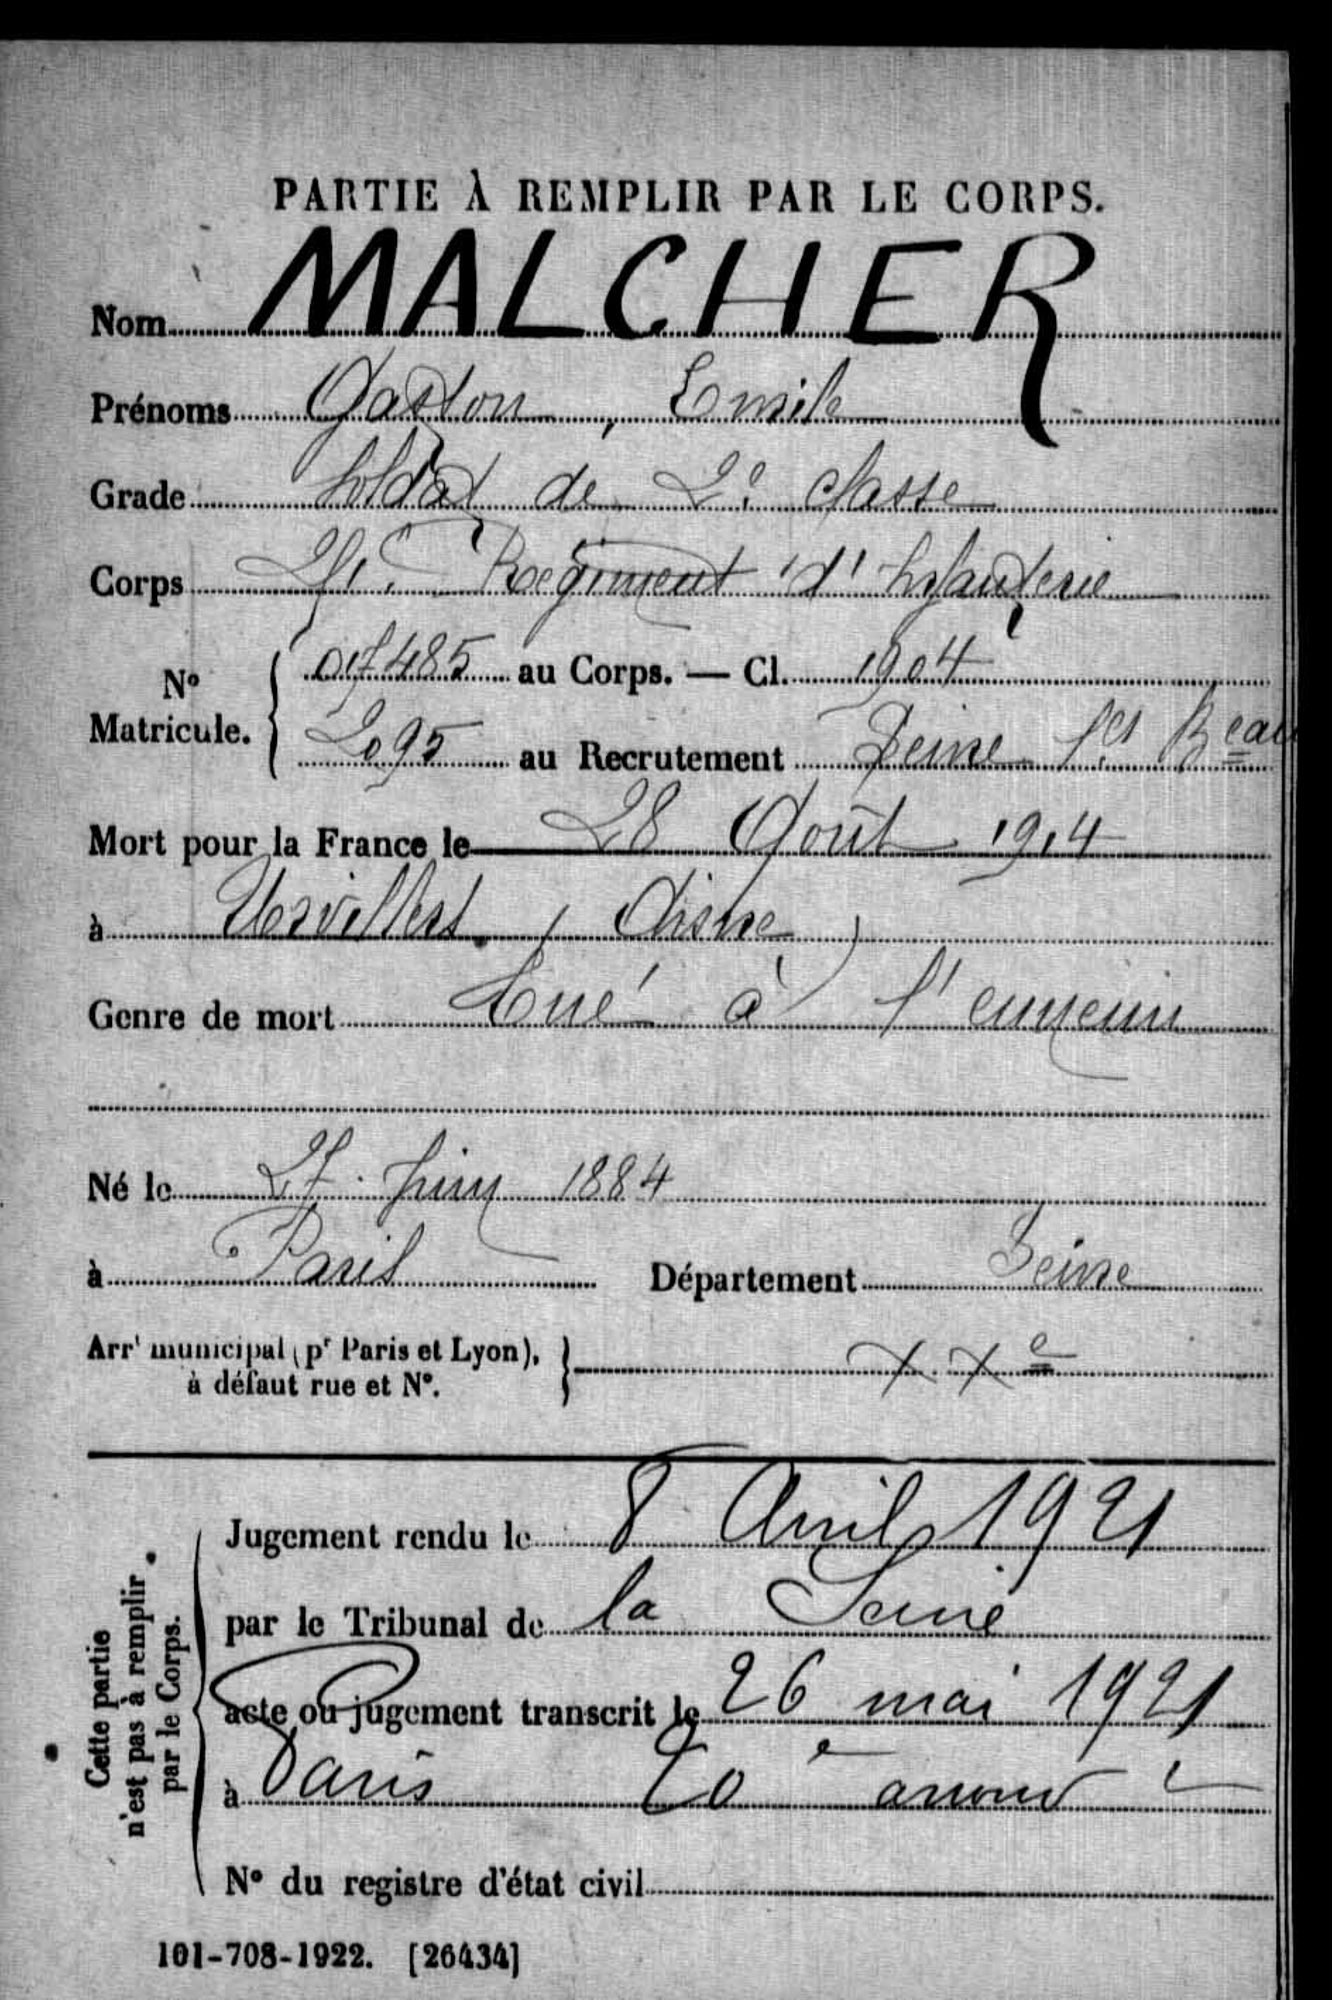 PARTIE À REMPLIR PAR LE CORPS.
Nom MALCHER
Prénoms Gaston, Emile
Grade Soldat de 2e classe
Corps Régiment d'Infanterie
No Matricule. 017485 au Corps. — Cl. 1904
2095 au Recrutement Seine
Mort pour la France le 28 Août 1914
à (Aisne)
Genre de mort Tué à l'ennemi
Né le 27 Juin 1884
à Paris Département Seine
Arrt municipal (pr Paris et Lyon), à défaut rue et No. XXe
Cette partie n'est pas à remplir par le Corps.
Jugement rendu le 8 Avril 1921
par le Tribunal de la Seine
acte ou jugement transcrit le 26 mai 1921
à Paris 20e arrond
No du registre d'état civil
101-708-1922. [26434]